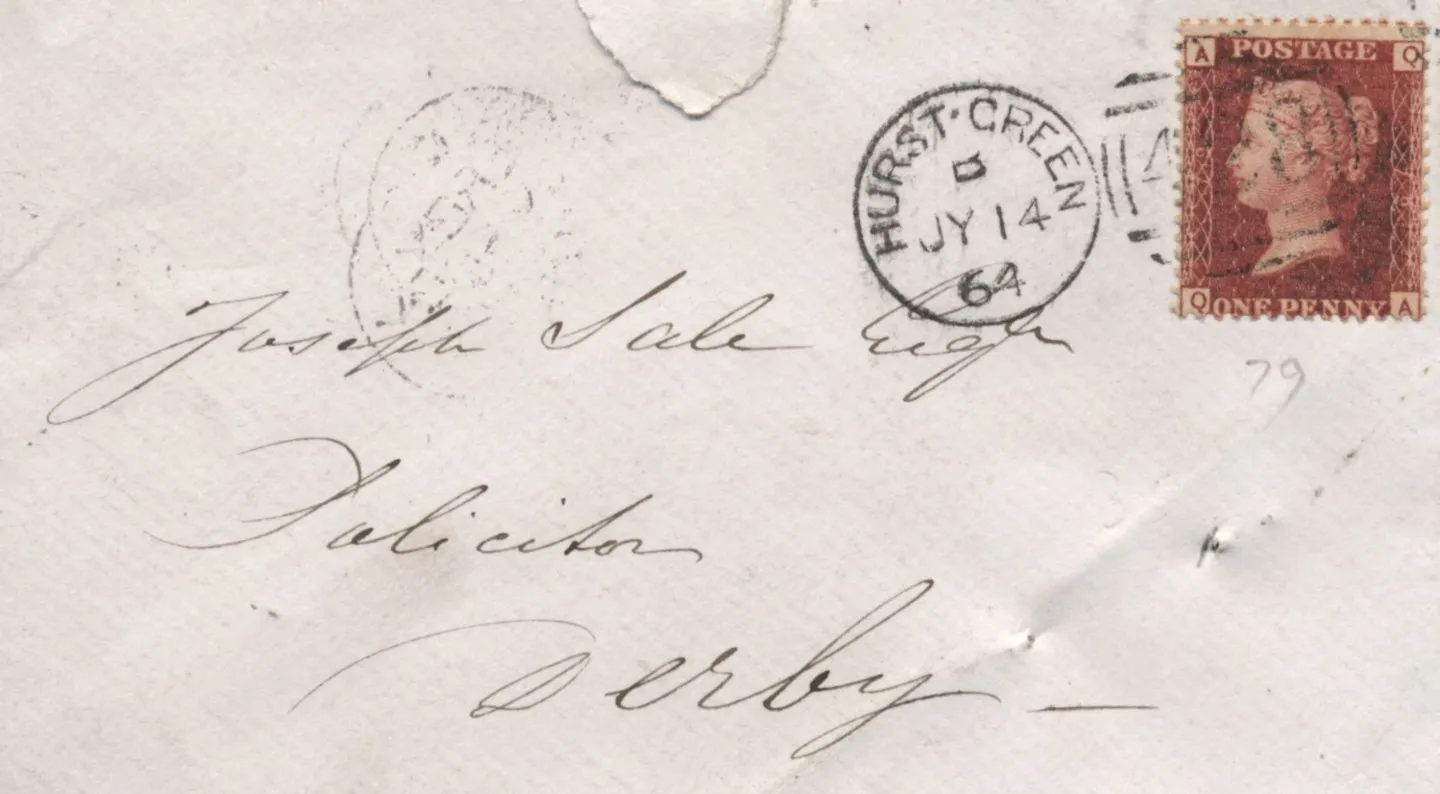 A POSTAGE Q
HURST·GREEN
D
JY 14
64
Q ONE PENNY A
Joseph Sale Esqr
79
Solicitor
Derby —